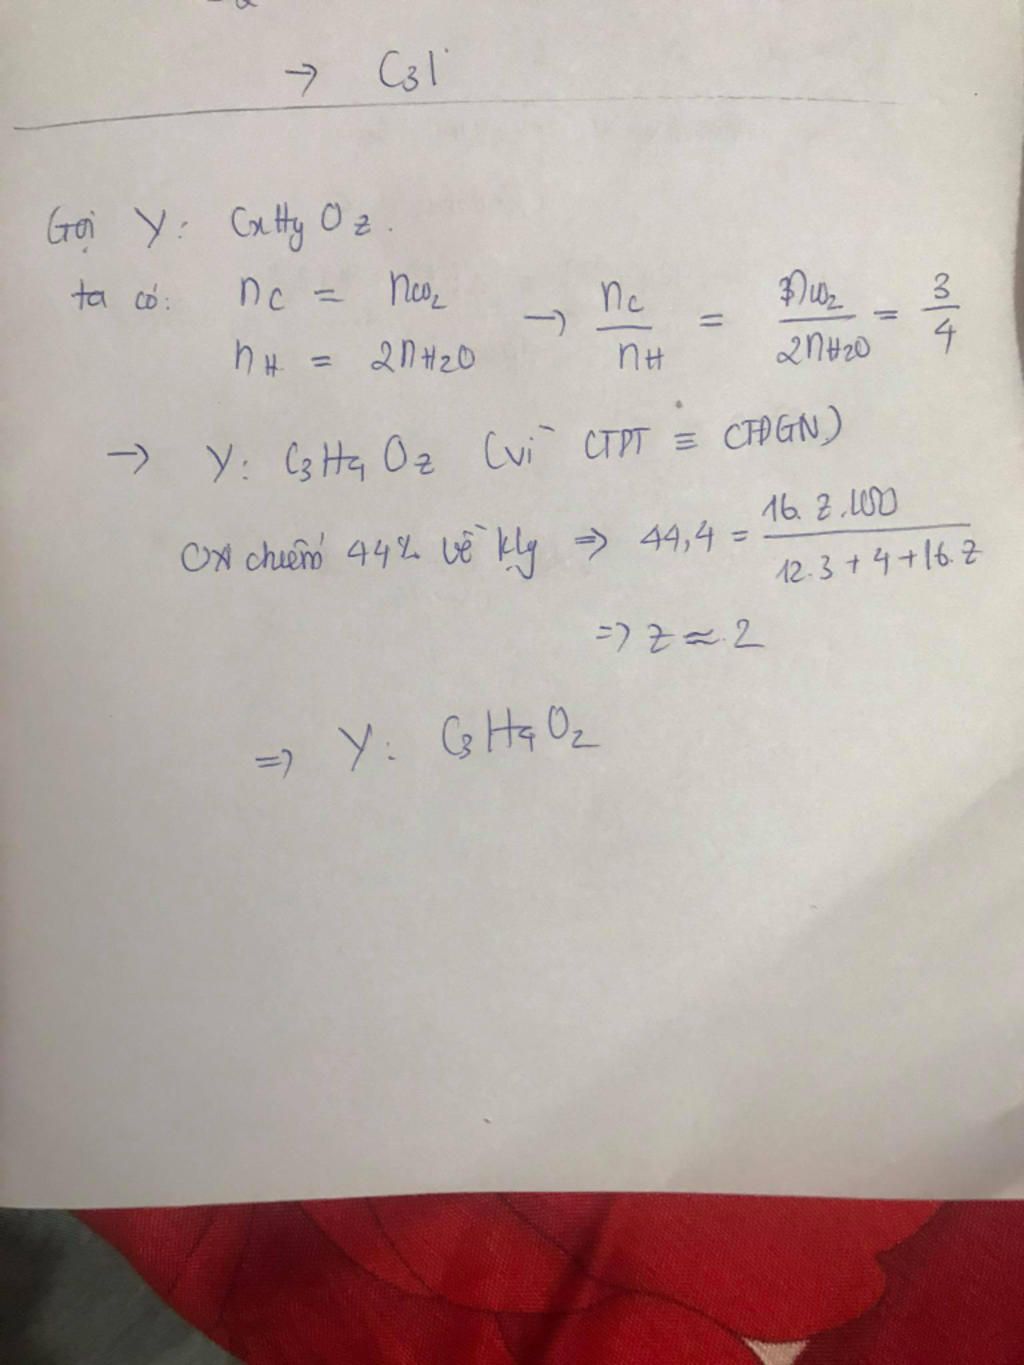 → C3I
Gọi Y: CxHyOz.
ta có: nC = nCO2 → nC/nH = nCO2/2nH2O = 3/4
nH = 2nH2O
→ Y: C3H4Oz (vì CTPT ≡ CTĐGN)
OXI chiếm 44% về klg ⇒ 44,4 = 16.z.100/12.3+4+16.z
⇒ z ≈ 2
⇒ Y: C3H4O2